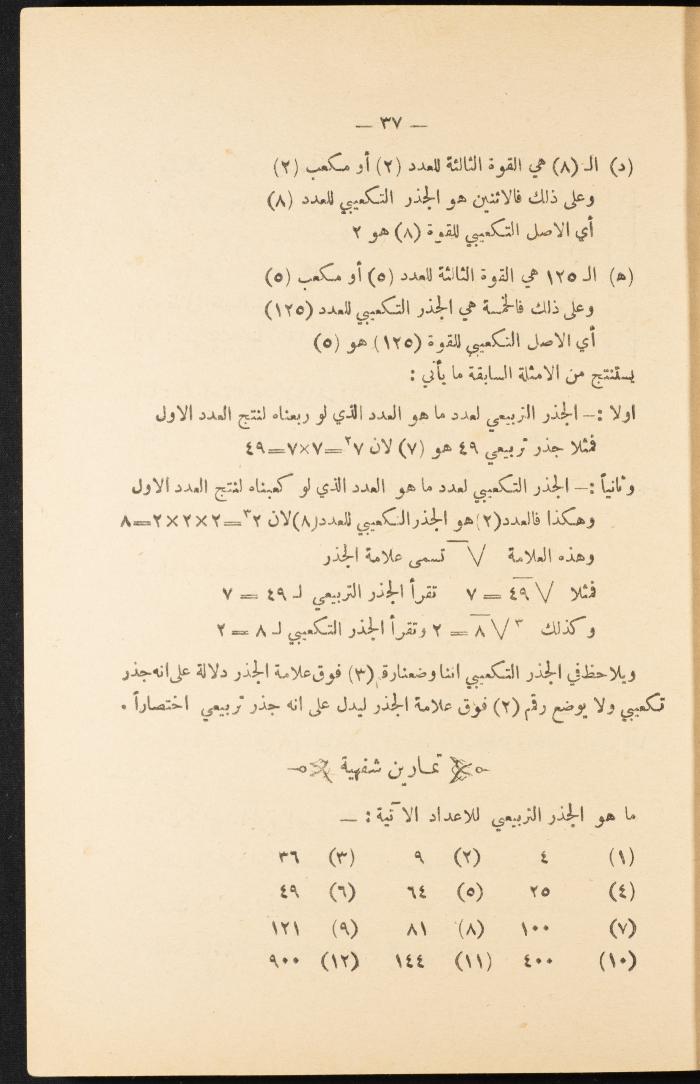 — ٣٧ —
(د) الـ (٨) هي القوة الثالثة للعدد (٢) أو مكعب (٢)
وعلى ذلك فالاثنين هو الجذر التكعيبي للعدد (٨)
أي الاصل التكعيبي للقوة (٨) هو ٢
(ه) الـ ١٢٥ هي القوة الثالثة للعدد (٥) أو مكعب (٥)
وعلى ذلك فالخمسة هي الجذر التكعيبي للعدد (١٢٥)
أي الاصل التكعيبي للقوة (١٢٥) هو (٥)
يستنتج من الامثلة السابقة ما يأتي :
اولا :— الجذر التربيعي لعدد ما هو العدد الذي لو ربعناه لنتج العدد الاول
فمثلا جذر تربيعي ٤٩ هو (٧) لان ٧²=٧×٧=٤٩
وثانياً :— الجذر التكعيبي لعدد ما هو العدد الذي لو كعبناه لنتج العدد الاول
وهكذا فالعدد(٢)هو الجذر التكعيبي للعدد(٨)لان ٢³=٢×٢×٢=٨
وهذه العلامة √ تسمى علامة الجذر
فمثلا √٤٩ = ٧ تقرأ الجذر التربيعي لـ ٤٩ = ٧
وكذلك ³√٨ = ٢ وتقرأ الجذر التكعيبي لـ ٨ = ٢
ويلاحظ في الجذر التكعيبي اننا وضعنا رقم (٣) فوق علامة الجذر دلالة على انه جذر
تكعيبي ولا يوضع رقم (٢) فوق علامة الجذر ليدل على انه جذر تربيعي اختصاراً .
تمارين شفهية
ما هو الجذر التربيعي للاعداد الآتية : —
(١) ٤ (٢) ٩ (٣) ٣٦
(٤) ٢٥ (٥) ٦٤ (٦) ٤٩
(٧) ١٠٠ (٨) ٨١ (٩) ١٢١
(١٠) ٤٠٠ (١١) ١٤٤ (١٢) ٩٠٠